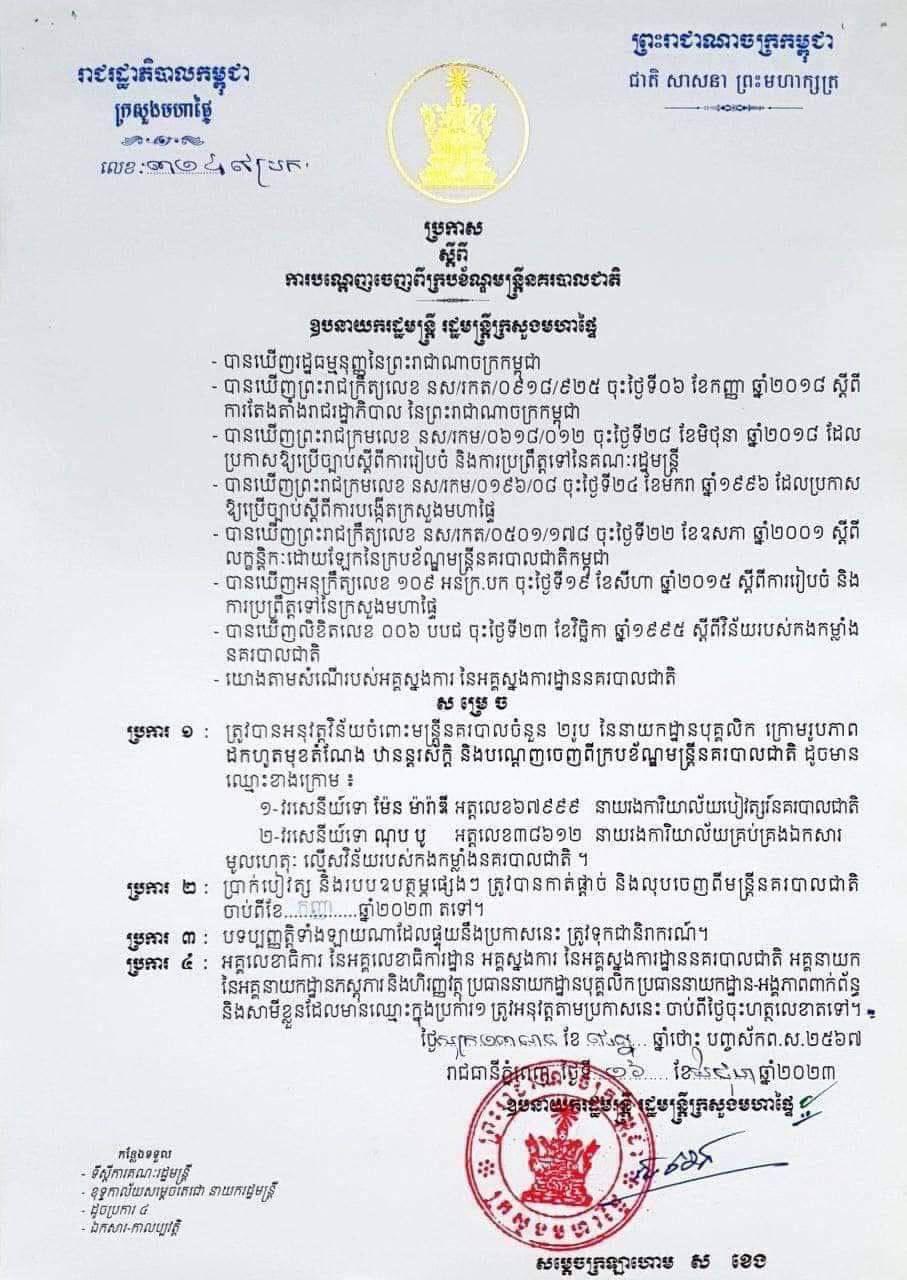 ព្រះរាជាណាចក្រកម្ពុជា
ជាតិ សាសនា ព្រះមហាក្សត្រ
រាជរដ្ឋាភិបាលកម្ពុជា
ក្រសួងមហាផ្ទៃ
លេខ:
ប្រកាស
ស្តីពី
ការបណ្តេញចេញពីក្របខ័ណ្ឌមន្ត្រីនគរបាលជាតិ
ឧបនាយករដ្ឋមន្ត្រី រដ្ឋមន្ត្រីក្រសួងមហាផ្ទៃ
- បានឃើញរដ្ឋធម្មនុញ្ញនៃព្រះរាជាណាចក្រកម្ពុជា
- បានឃើញព្រះរាជក្រឹត្យលេខ នស/រកត/០៩១៨/៩២៥ ចុះថ្ងៃទី០៦ ខែកញ្ញា ឆ្នាំ២០១៨ ស្តីពី
ការតែងតាំងរាជរដ្ឋាភិបាល នៃព្រះរាជាណាចក្រកម្ពុជា
- បានឃើញព្រះរាជក្រមលេខ នស/រកម/០៦១៨/០១២ ចុះថ្ងៃទី២៨ ខែមិថុនា ឆ្នាំ២០១៨ ដែល
ប្រកាសឱ្យប្រើច្បាប់ស្តីពីការរៀបចំ និងការប្រព្រឹត្តទៅនៃគណៈរដ្ឋមន្ត្រី
- បានឃើញព្រះរាជក្រមលេខ នស/រកម/០១៩៦/០៨ ចុះថ្ងៃទី២៤ ខែមករា ឆ្នាំ១៩៩៦ ដែលប្រកាស
ឱ្យប្រើច្បាប់ស្តីពីការបង្កើតក្រសួងមហាផ្ទៃ
- បានឃើញព្រះរាជក្រឹត្យលេខ នស/រកត/០៥០១/១៧៨ ចុះថ្ងៃទី២២ ខែឧសភា ឆ្នាំ២០០១ ស្តីពី
លក្ខន្តិកៈដោយឡែកនៃក្របខ័ណ្ឌមន្ត្រីនគរបាលជាតិកម្ពុជា
- បានឃើញអនុក្រឹត្យលេខ ១០៩ អនក្រ.បក ចុះថ្ងៃទី១៩ ខែសីហា ឆ្នាំ២០១៥ ស្តីពីការរៀបចំ និង
ការប្រព្រឹត្តទៅនៃក្រសួងមហាផ្ទៃ
- បានឃើញលិខិតលេខ ០០៦ បបជ ចុះថ្ងៃទី២៣ ខែវិច្ឆិកា ឆ្នាំ១៩៩៥ ស្តីពីវិន័យរបស់កងកម្លាំង
នគរបាលជាតិ
- យោងតាមសំណើរបស់អគ្គស្នងការ នៃអគ្គស្នងការដ្ឋាននគរបាលជាតិ
ស ម្រេ ច
ប្រការ ១ : ត្រូវបានអនុវត្តវិន័យចំពោះមន្ត្រីនគរបាលចំនួន ២រូប នៃនាយកដ្ឋានបុគ្គលិក ក្រោមរូបភាព
ដកហូតមុខតំណែង ឋានន្តរស័ក្តិ និងបណ្តេញចេញពីក្របខ័ណ្ឌមន្ត្រីនគរបាលជាតិ ដូចមាន
ឈ្មោះខាងក្រោម ៖
១-វរសេនីយ៍ទោ ម៉ែន ម៉ារ៉ាឌី អត្តលេខ៦៧៩៩៩ នាយរងការិយាល័យបៀវត្សរ៍នគរបាលជាតិ
២-វរសេនីយ៍ទោ ណុប បូ អត្តលេខ៣៨៦១២ នាយរងការិយាល័យគ្រប់គ្រងឯកសារ
មូលហេតុ: ល្មើសវិន័យរបស់កងកម្លាំងនគរបាលជាតិ ។
ប្រការ ២ : ប្រាក់បៀវត្ស និងរបបឧបត្ថម្ភផ្សេងៗ ត្រូវបានកាត់ផ្តាច់ និងលុបចេញពីមន្ត្រីនគរបាលជាតិ
ចាប់ពីខែ...កញ្ញា...ឆ្នាំ២០២៣ តទៅ។
ប្រការ ៣ : បទប្បញ្ញត្តិទាំងឡាយណាដែលផ្ទុយនឹងប្រកាសនេះ ត្រូវទុកជានិរាករណ៍។
ប្រការ ៤ : អគ្គលេខាធិការ នៃអគ្គលេខាធិការដ្ឋាន អគ្គស្នងការ នៃអគ្គស្នងការដ្ឋាននគរបាលជាតិ អគ្គនាយក
នៃអគ្គនាយកដ្ឋានភស្តុភារ និងហិរញ្ញវត្ថុ ប្រធាននាយកដ្ឋានបុគ្គលិក ប្រធាននាយកដ្ឋាន-អង្គភាពពាក់ព័ន្ធ
និងសាមីខ្លួនដែលមានឈ្មោះក្នុងប្រការ១ ត្រូវអនុវត្តតាមប្រកាសនេះ ចាប់ពីថ្ងៃចុះហត្ថលេខាតទៅ។
ថ្ងៃ ខែ ឆ្នាំថោះ បញ្ចស័កព.ស.២៥៦៧
រាជធានីភ្នំពេញ ថ្ងៃទី...១៦... ខែ ឆ្នាំ២០២៣
ឧបនាយករដ្ឋមន្ត្រី រដ្ឋមន្ត្រីក្រសួងមហាផ្ទៃ
ព្រះរាជាណាចក្រកម្ពុជា
ក្រសួងមហាផ្ទៃ
កន្លែងទទួល
- ទីស្តីការគណៈរដ្ឋមន្ត្រី
- ខុទ្ទកាល័យសម្តេចតេជោ នាយករដ្ឋមន្ត្រី
- ដូចប្រការ ៤
- ឯកសារ-កាលប្បវត្តិ
សម្តេចក្រឡាហោម ស ខេង